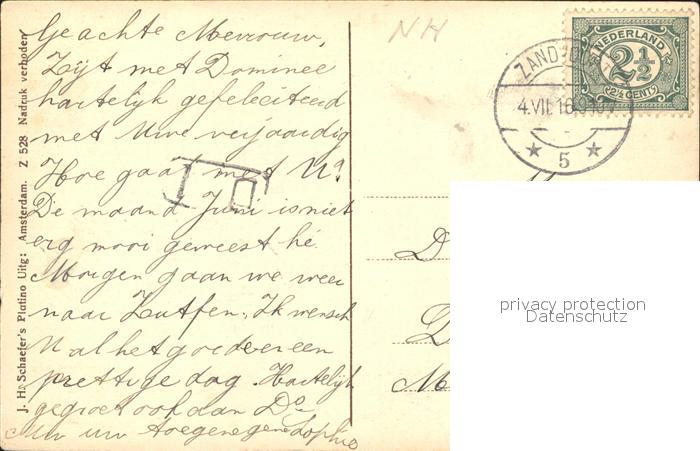 Geachte Mevrouw,
Zijt met Dominee
hartelijk gefeliciteerd
met Uwe verjaardig
Hoe gaat met U?
De maand Juni is niet
erg mooi geweest hé.
Morgen gaan we weer
naar Zutfen. Ik wensch
U al het goede en een
prettige dag. Hartelijk
gegroet ook aan Ds.
van uw toegenegene Sophie
J. H. Schaefer's Platino Uitg: Amsterdam. Z 528 Nadruk verboden
NH
4.VII.16
5
NEDERLAND
2½
(2½ CENT)
D
D
M
privacy protection
Datenschutz